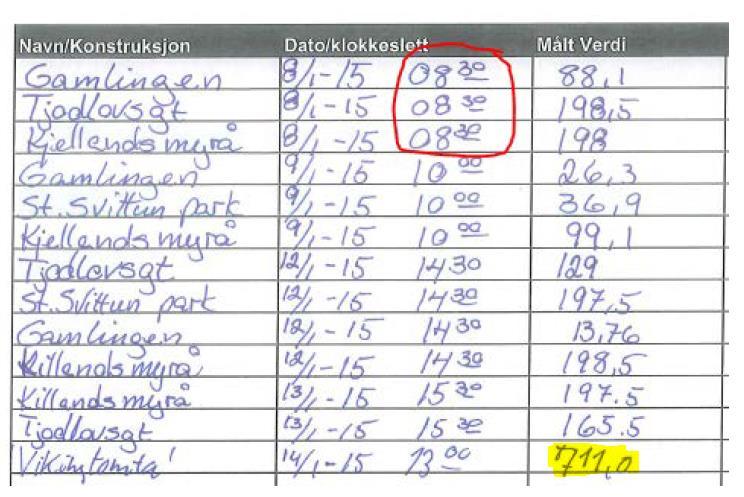 Navn/Konstruksjon Dato/klokkeslett Målt Verdi
Gamlingen 8/1-15 08 30 88,1
Tjodlovsgt 8/1-15 08 30 198,5
Kjellandsmyrå 8/1-15 08 30 198
Gamlingen 9/1-15 10 00 26,3
St. Svittun park 9/1-15 10 00 36,9
Kjellandsmyrå 9/1-15 10 00 99,1
Tjodlovsgt 12/1-15 14 30 129
St. Svittun park 12/1-15 14 30 197,5
Gamlingen 12/1-15 14 30 13,76
Killandsmyrå 12/1-15 14 30 198,5
Killandsmyrå 13/1-15 15 30 197.5
Tjodlovsgt 13/1-15 15 30 165.5
'Vikingtomta' 14/1-15 13 00 711,0